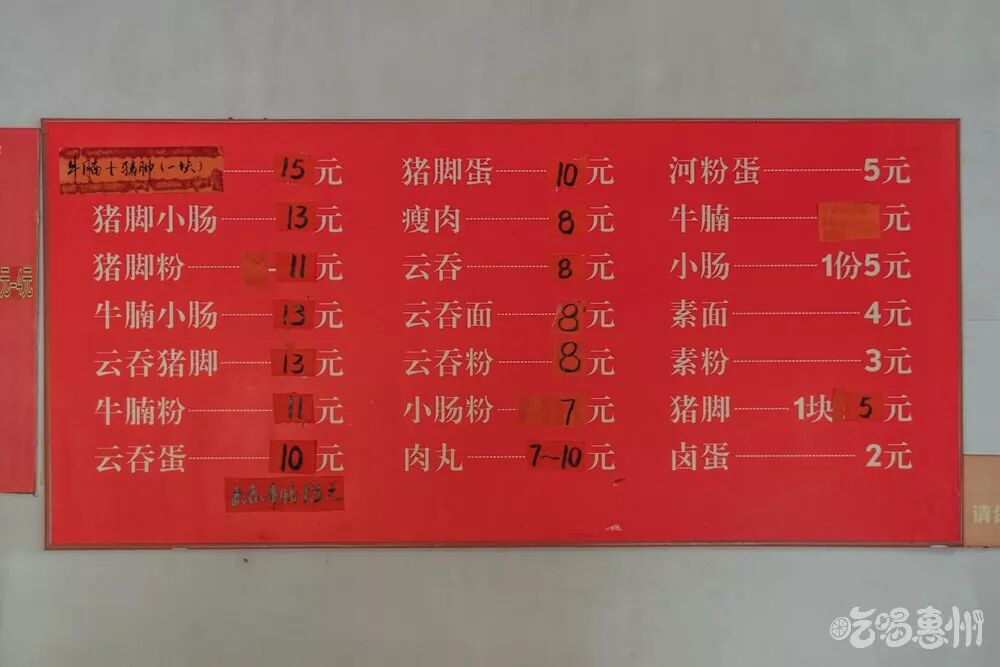 牛腩+猪脚(一块) 15元
猪脚小肠 13元
猪脚粉 11元
牛腩小肠 13元
云吞猪脚 13元
牛腩粉 11元
云吞蛋 10元
13元
猪脚蛋 10元
瘦肉 8元
云吞 8元
云吞面 8元
云吞粉 8元
小肠粉 7元
肉丸 7~10元
河粉蛋 5元
牛腩 元
小肠 1份5元
素面 4元
素粉 3元
猪脚 1块5元
卤蛋 2元
元-4元
请
吃喝惠州